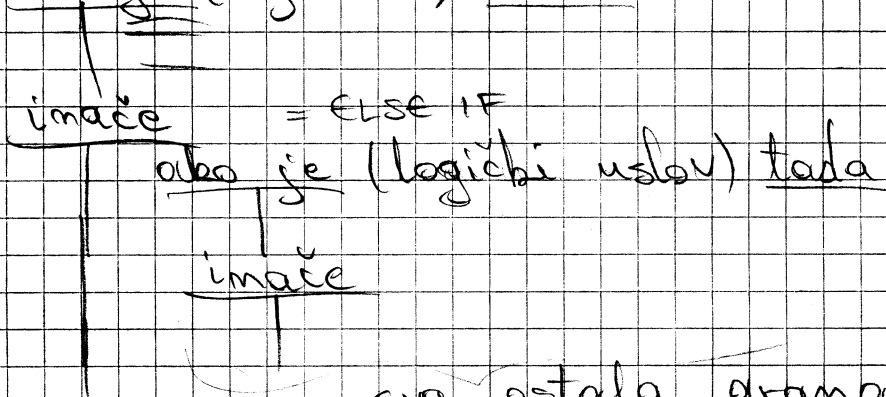 inače = ELSE IF
ako je (logički uslov) tada
inače
ostala